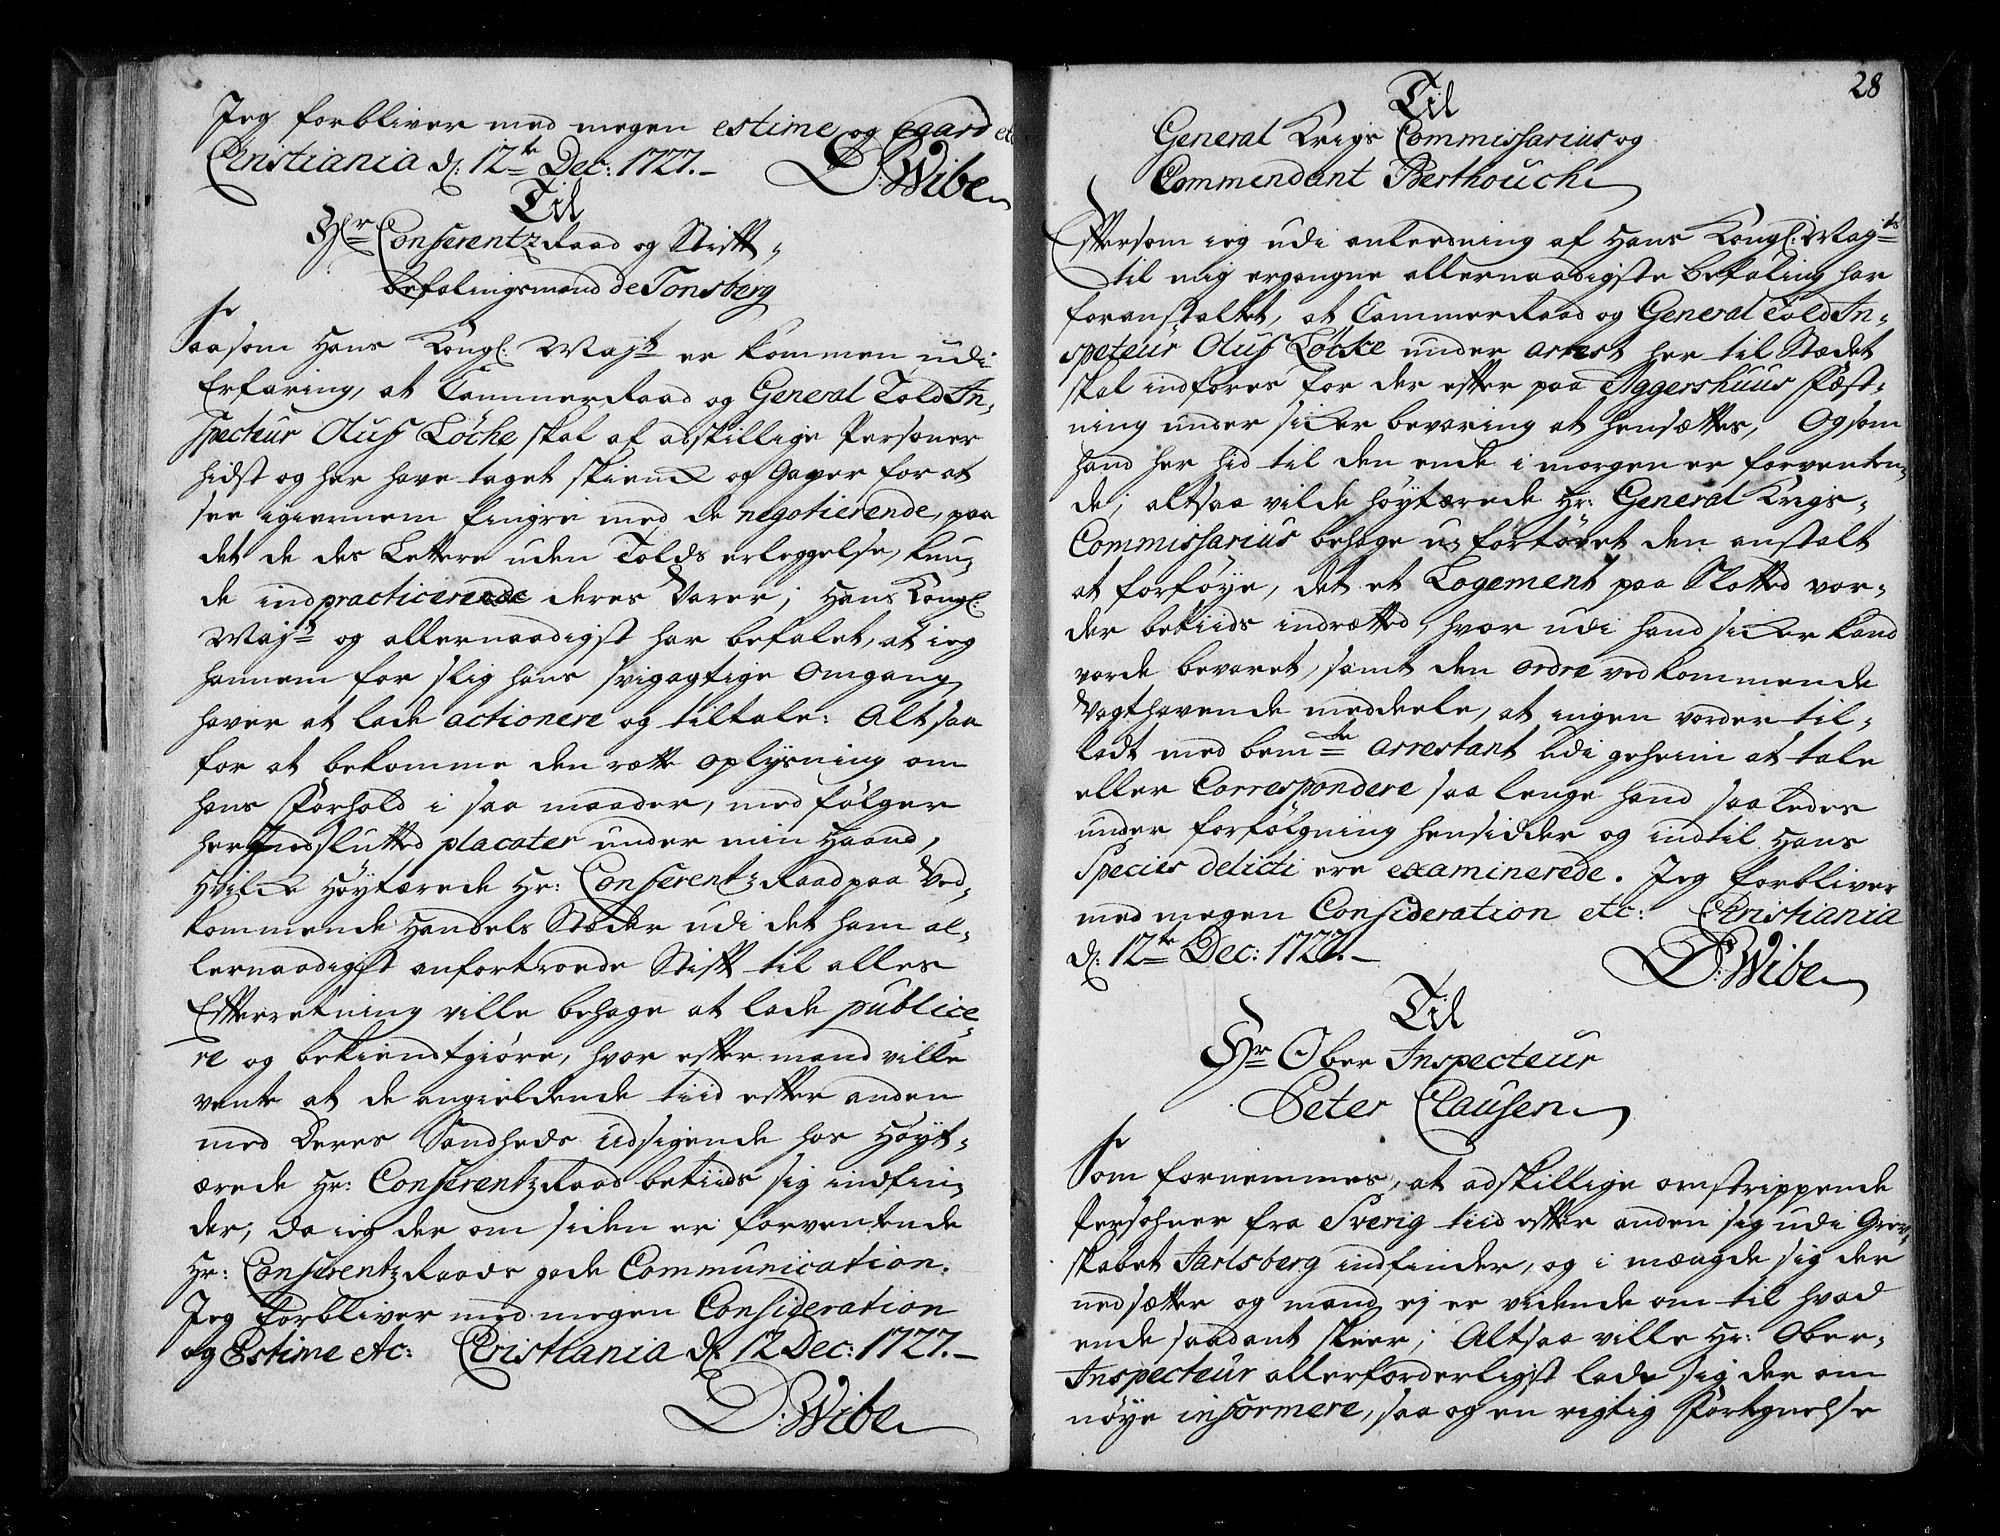 Jeg forbliver med megen estime og egard etc
Christiania d: 12te Dec: 1727.-
D: Wibe
Til
Hr ConferentzRaad og Stift-
befalingsmand de Tonsberg
Saasom Hans Kongl: Majts er kommen udi
Erfaring, at CammerRaad og General Told In-
specteur Oluf Löche skal af adskillige Personer
hidst og her have taget skienck og Gaver for at
see igiennem fingre med de negotierende, paa
det de des Lettere uden Tolds erleggelse, kun-
de indpracticerede deres Varer; Hans Kongl:
Majts og allernaadigst har befalet, at ieg
hannem for slig hans svigagtige Omgang
haver at lade actionere og tiltale: Altsaa
for at bekomme den rætte Oplysning om
hans Forhold i saa maader, med følger
her Indslutted placater under min Haand,
Hvilcke Höytærede Hr: ConferentzRaad paa Ved-
kommende Handels Stæder udi det ham al-
lernaadigst anfortroede Stift til alles
Efterretning ville behage at lade publice-
re og bekiendtgiöre, hvor efter mand ville
vente at de angieldende tiid efter anden
med Deres Sandheds Udsigende hos Höyt-
ærede Hr: ConferentzRaad betiids sig indfin-
der, da ieg der om siden er forventende
Hr: ConferentzRaads gode Communication.
Jeg forbliver med megen Consideration
og Estime etc: Christiania d: 12 Dec: 1727.-
D: Wibe
28
Til
General Krigs Commissarius og
Commendant Berthouch
Eftersom ieg udi anledning af Hans Kongl: Majts
til mig ergangne allernaadigste befaling har
foranstaltet, at CammerRaad og General Told In-
specteur Oluf Löcke under arrest her til Stædet
skal indföres for der efter paa Aggershuus Fæst-
ning under sicker bevaring at hensættes, Og som
hand her hid til den ende i morgen er forventen-
de; altsaa vilde höytærede Hr: General Krigs-
Commissarius behage ufortövet den anstalt
at forföye, det et Logement paa Slotted vor-
der betiids indrætted, hvor udi hand sicker kand
vorde bevaret, samt den ordre ved kommende
Vagthavende meddeele, at ingen vorder til-
ladt med bemte arrestant udi geheim at tale
eller Correspondere saa lenge hand saaledes
under forfölgning hensidder og indtil Hans
Species delicti ere examinerede. Jeg forbliver
med megen Consideration etc: Christiania
d: 12te Dec: 1727.-
D: Wibe
Til
Hr Ober Inspecteur
Peter Clausen
Som fornemmes, at adskillige omstrippende
Persohner fra Sverig tiid efter anden sig udi Grev-
skabet Jarlsberg indfinder, og i mængde sig der
nedsætter og mand ej er vidende om til hvad
ende saadant skeer; Altsaa ville Hr: Ober-
Inspecteur allerforderligst lade sig der om
nöye informere, saa og en rigtig Fortegnelse